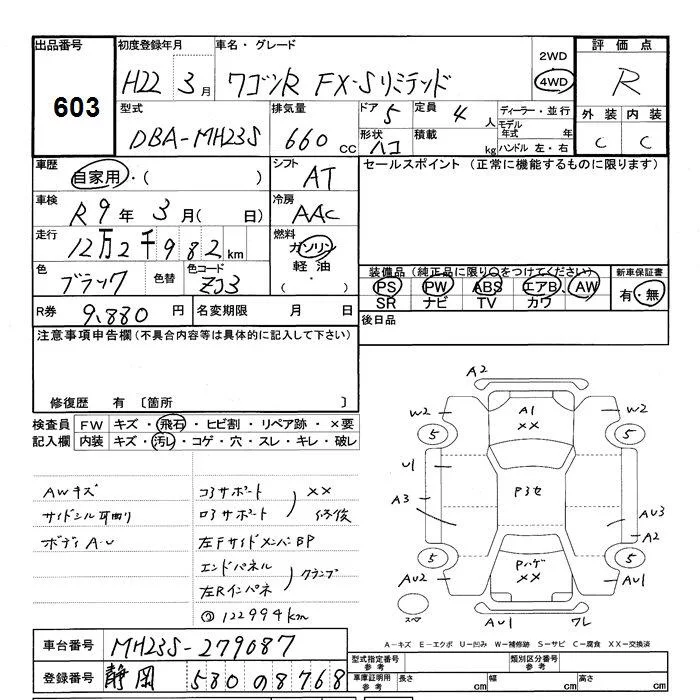 出品番号
603
初度登録年月
H22 3月
車名・グレード
ワゴンR FX-Sリミテッド
2WD
4WD
評価点
R
外装 内装
C C
型式
DBA-MH23S
排気量
660 cc
ドア 5
定員 4 人
形状 ハコ
積載 kg
ディーラー・並行
モデル年式 年
ハンドル 左・右
車歴
自家用・( )
シフト
AT
セールスポイント (正常に機能するものに限ります)
車検
R9年 3月( 日)
冷房
AAC
走行
12万2千982km
燃料
ガソリン
軽油
( ・ )
色
ブラック
色替
色コード
ZJ3
装備品 (純正品に限り○をつけてください)
PS PW ABS エアB AW
SR ナビ TV カワ
新車保証書
有・無
R券 9,880円
名変期限 月 日
後日品
注意事項申告欄(不具合内容等は具体的に記入して下さい)
修復歴 有 〔箇所 〕
検査員記入欄
FW キズ・飛石・ヒビ割・リペア跡・×要
内装 キズ・汚レ・コゲ・穴・スレ・キレ・破レ
AWキズ
サイドシル耳曲り
ボディA-U
コアサポート
ロアサポート
XX
修後
左FサイドメンバBP
エンドパネル
左Rインパネ
クランプ
122994km
A2
W2
A1
XX
W2
5
5
U1
A3
P3セ
AU3
A2
5
5
AU2
Pハゲ
XX
AU1
スペア
AU1
ワレ
A-キズ E-エクボ U-凹み W-補修跡 S-サビ C-腐食 XX-交換済
車台番号
MH23S-279087
登録番号
静岡 580 の 8768
型式指定番号
参考
類別区分番号
参考
車庫証明用
参考
長さ cm
幅 cm
高さ cm